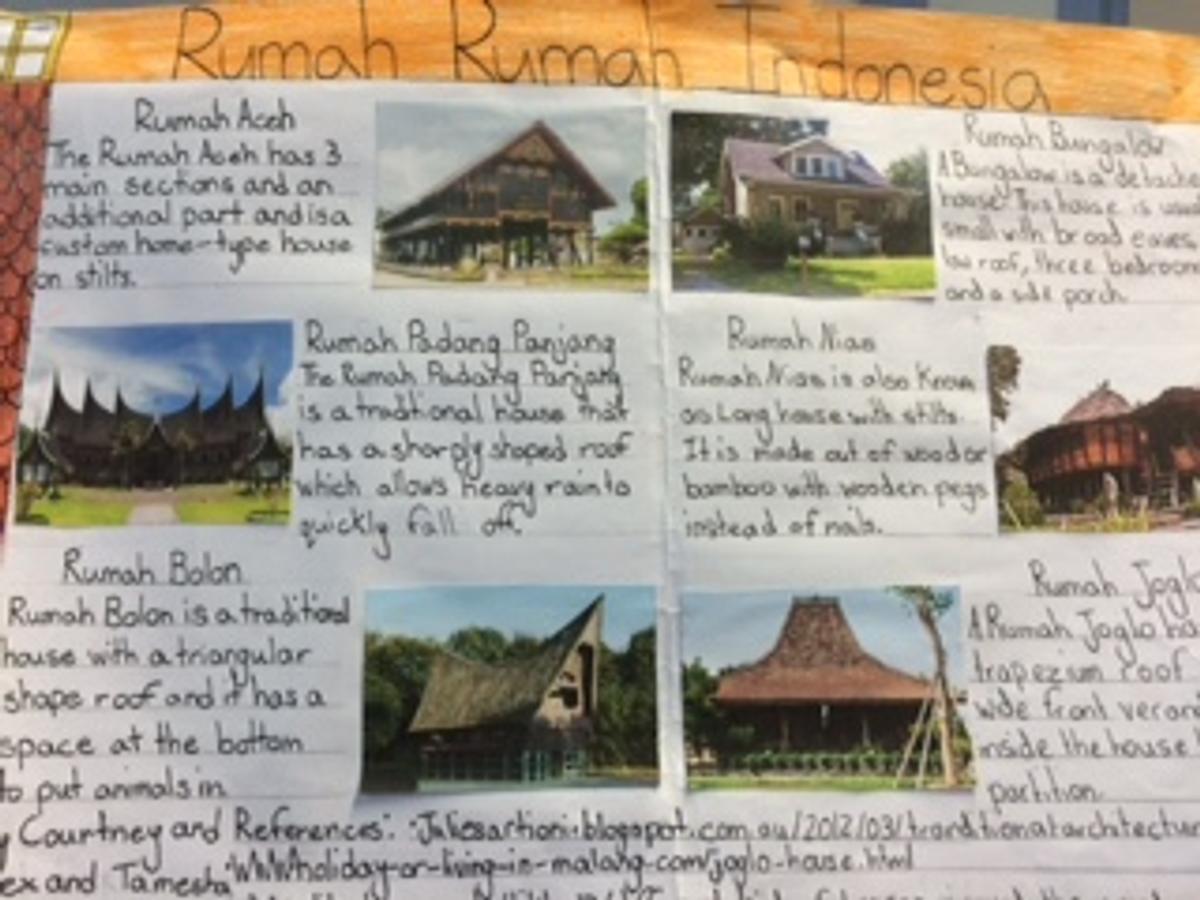 Rumah Rumah Indonesia
Rumah Aceh
The Rumah Aceh has 3
main sections and an
additional part and is a
custom home-type house
on stilts.
Rumah Bungalow
A Bungalow is a detache
house. This house is usu
small with broad eaves,
low roof, three bedroom
and a side porch.
Rumah Padang Panjang
The Rumah Padang Panjang
is a traditional house that
has a sharply shaped roof
which allows heavy rain to
quickly fall off.
Rumah Nias
Rumah Nias is also known
as Long house with stilts.
It is made out of wood or
bamboo with wooden pegs
instead of nails.
Rumah Bolon
Rumah Bolon is a traditional
house with a triangular
shape roof and it has a
space at the bottom
to put animals in.
Rumah Joglo
A Rumah Joglo ha
trapezium roof
wide front veran
inside the house
partition.
y Courtney and
ex and Tamesha
References:
blogspot.com.au/2012/03/
holiday-or-living-in-malang-com/joglo-house.html